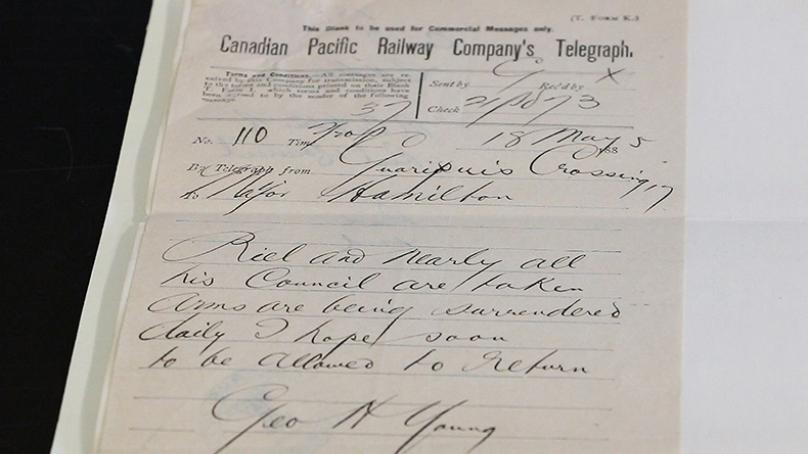 (T. FORM K.)
This Blank to be used for Commercial Messages only.
Canadian Pacific Railway Company's Telegraph.
Terms and Conditions.—All messages are re-
ceived by this Company for transmission, subject
to the terms and conditions printed on their Blank
T. Form I., which terms and conditions have
been agreed to by the sender of the following
message.
Sent by Rec'd by
Check
37
No. 110 Time
18 May 188 5
By Telegraph from Guaripuis Crossing 17
to Major Hamilton
Riel and nearly all
his Council are taken
arms are being surrendered
daily I hope soon
to be allowed to return
Geo H Young